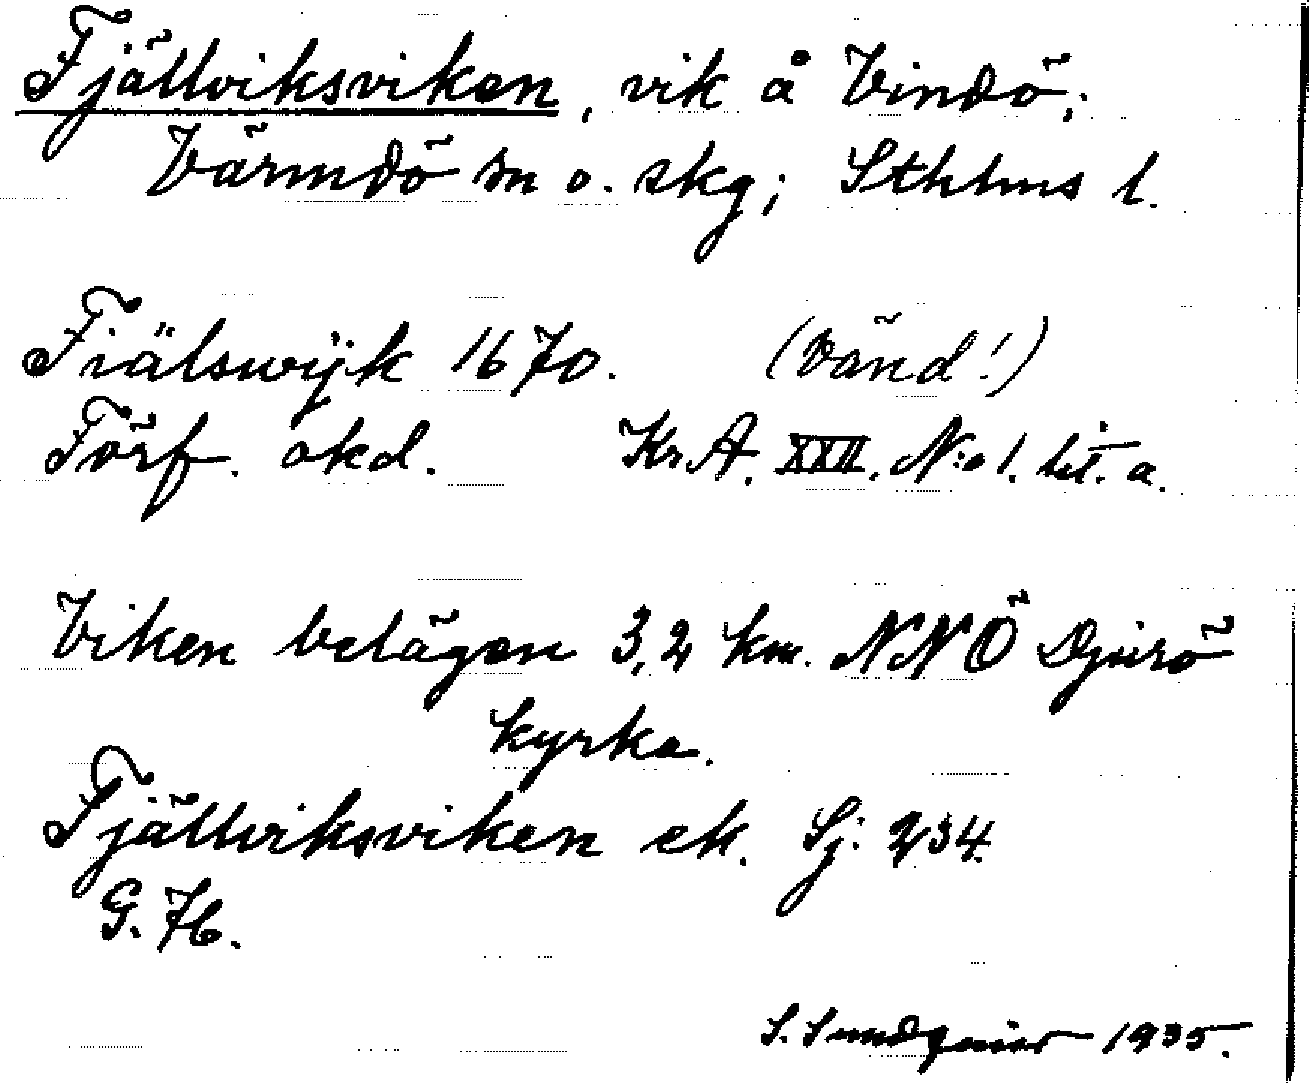 Fjällviksviken, vik å Vindö;
Värmdö sn o. skg; Sthlms l.
Fiälswijk 1670. (Vänd!)
Förf. okd. Kr.A. XXII. N:o 1. lit. a.
Viken belägen 3,2 km. NNÖ Djurö
kyrka.
Fjällviksviken ek. Sj: 234.
G. 76.
S. Sundqvist 1935.